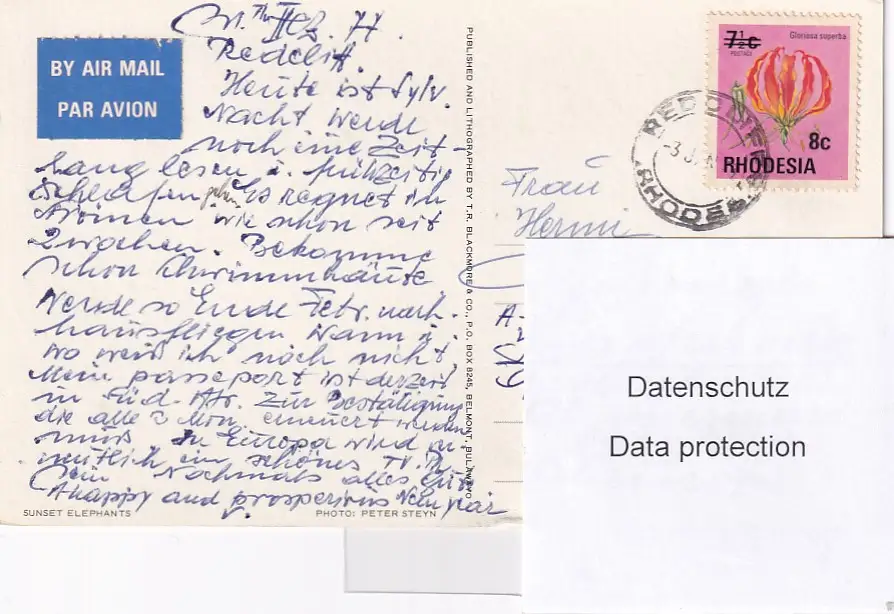 31. Th Dez. 77.
Redcliff.
BY AIR MAIL
PAR AVION
Heute ist Sylv.
Nacht werde
noch eine Zeit-
lang lesen u. frühzeitig
schlafen gehn. Es regnet in
Strömen wie schon seit
2 Wochen. Bekomme
schon Schwimmhäute
Werde so Ende Febr. nach-
hausfliegen wann u.
wo weiß ich noch nicht
Mein passeport ist derzeit
in Süd. Afr. zur Bestätigung
die alle 2 Mon. erneuert werden
muß In Europa wird
ein schönes
sein Nochmals alles Gute
A happy and prosperious New year
SUNSET ELEPHANTS
PHOTO: PETER STEYN
PUBLISHED AND LITHOGRAPHED BY T.R. BLACKMORE & CO., P.O. BOX 8245, BELMONT, BULAWAYO
7½c
POSTAGE
Gloriosa superba
8c
RHODESIA
REDCLIFF
-3 JAN
RHODESIA
Frau
Hermi
A-
Datenschutz
Data protection